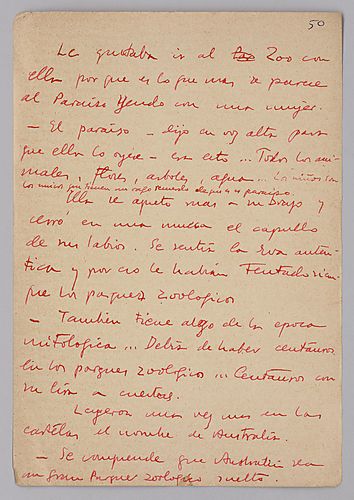 50
Le gustaba ir al Zoo con
ella porque es lo que mas se parece
al Paraiso Yendo con una mujer.
- El paraiso - dijo en voz alta para
que ella lo oyese - era esto ... Todos los ani-
males, flores, arboles, agua ... Los niños son
los unicos que tienen un vago recuerdo de que es el paraiso.
Ella se apretó mas a su brazo y
cerró en una mueca el capullo
de sus labios. Se sentia la Eva autén-
tica y por eso le habian tentado siem-
pre los parques zoologicos
- Tambien tiene algo de la epoca
mitologica ... Debia de haber centauros
en los parques zoologicos ... Centauros con
su lira a cuestas.
Leyeron una vez mas en los
carteles el nombre de Australia.
- Se comprende que Australia sea
un gran Parque zoologico suelto.